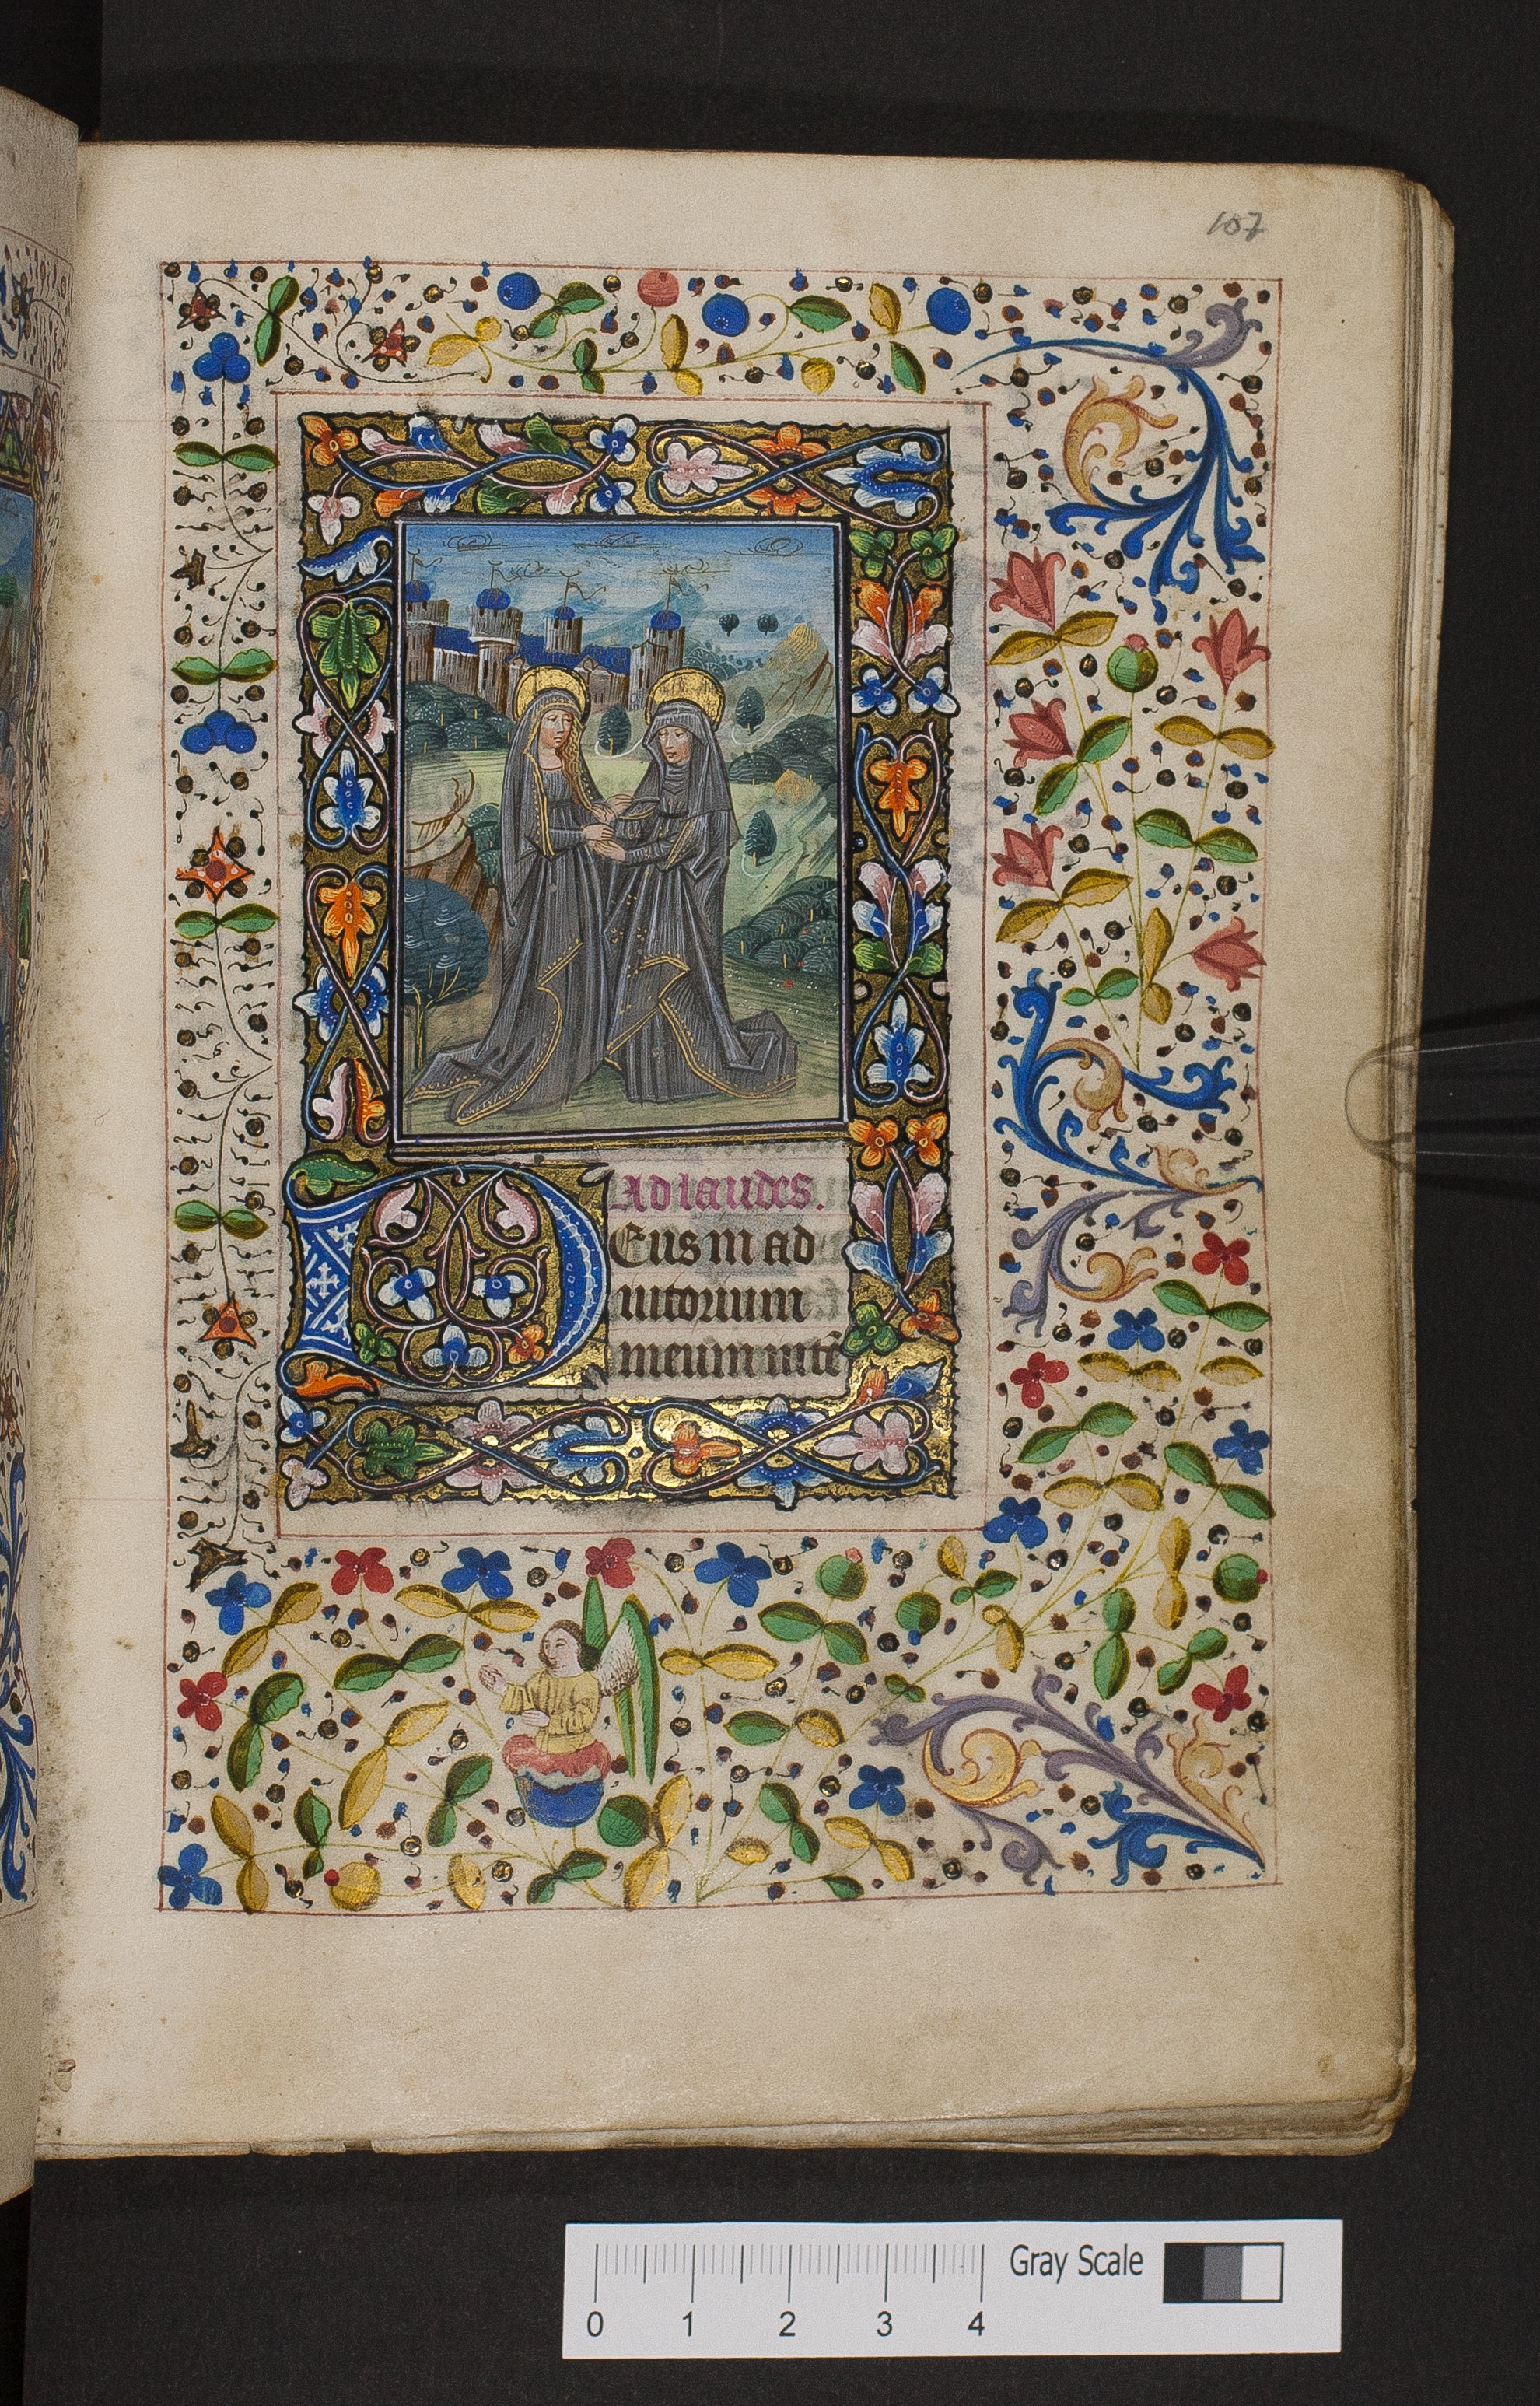 107
Ad laudes.
Deus in ad
iutorium
meum intē
Gray Scale
0 1 2 3 4